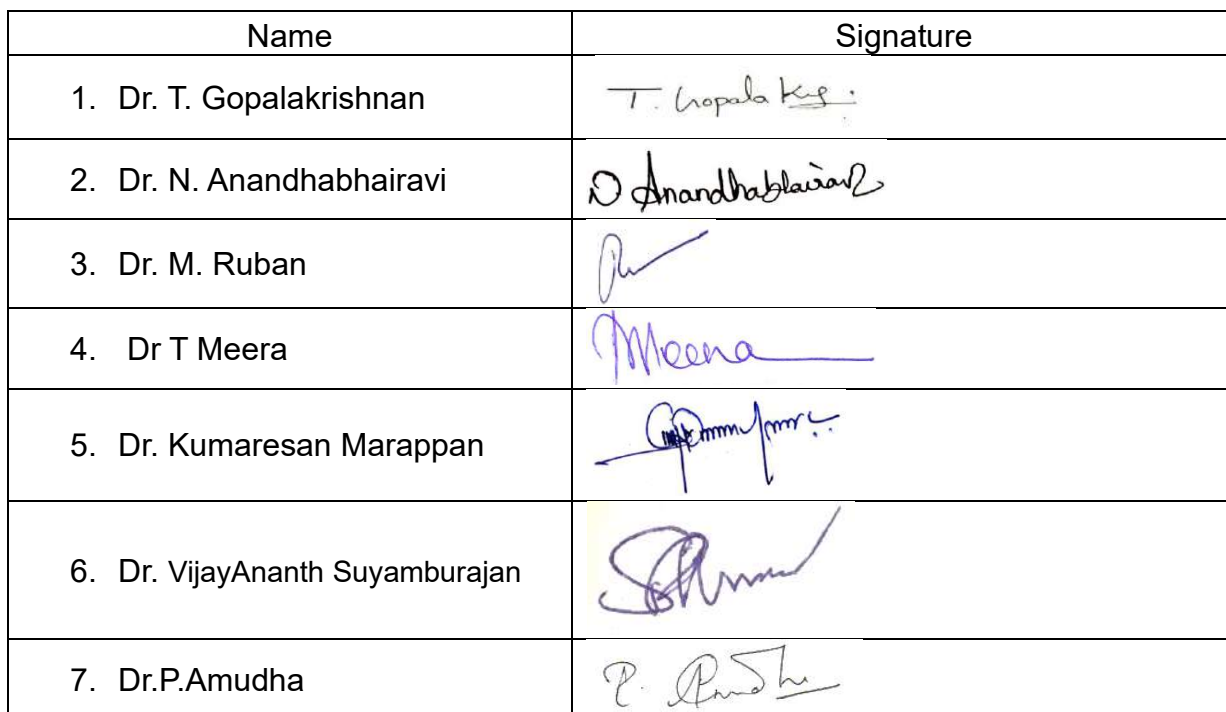 Name Signature
1. Dr. T. Gopalakrishnan T. Gopala
2. Dr. N. Anandhabhairavi N Anandhabhairavi
3. Dr. M. Ruban
4. Dr T Meera Meera
5. Dr. Kumaresan Marappan
6. Dr. VijayAnanth Suyamburajan
7. Dr.P.Amudha P. Amudha